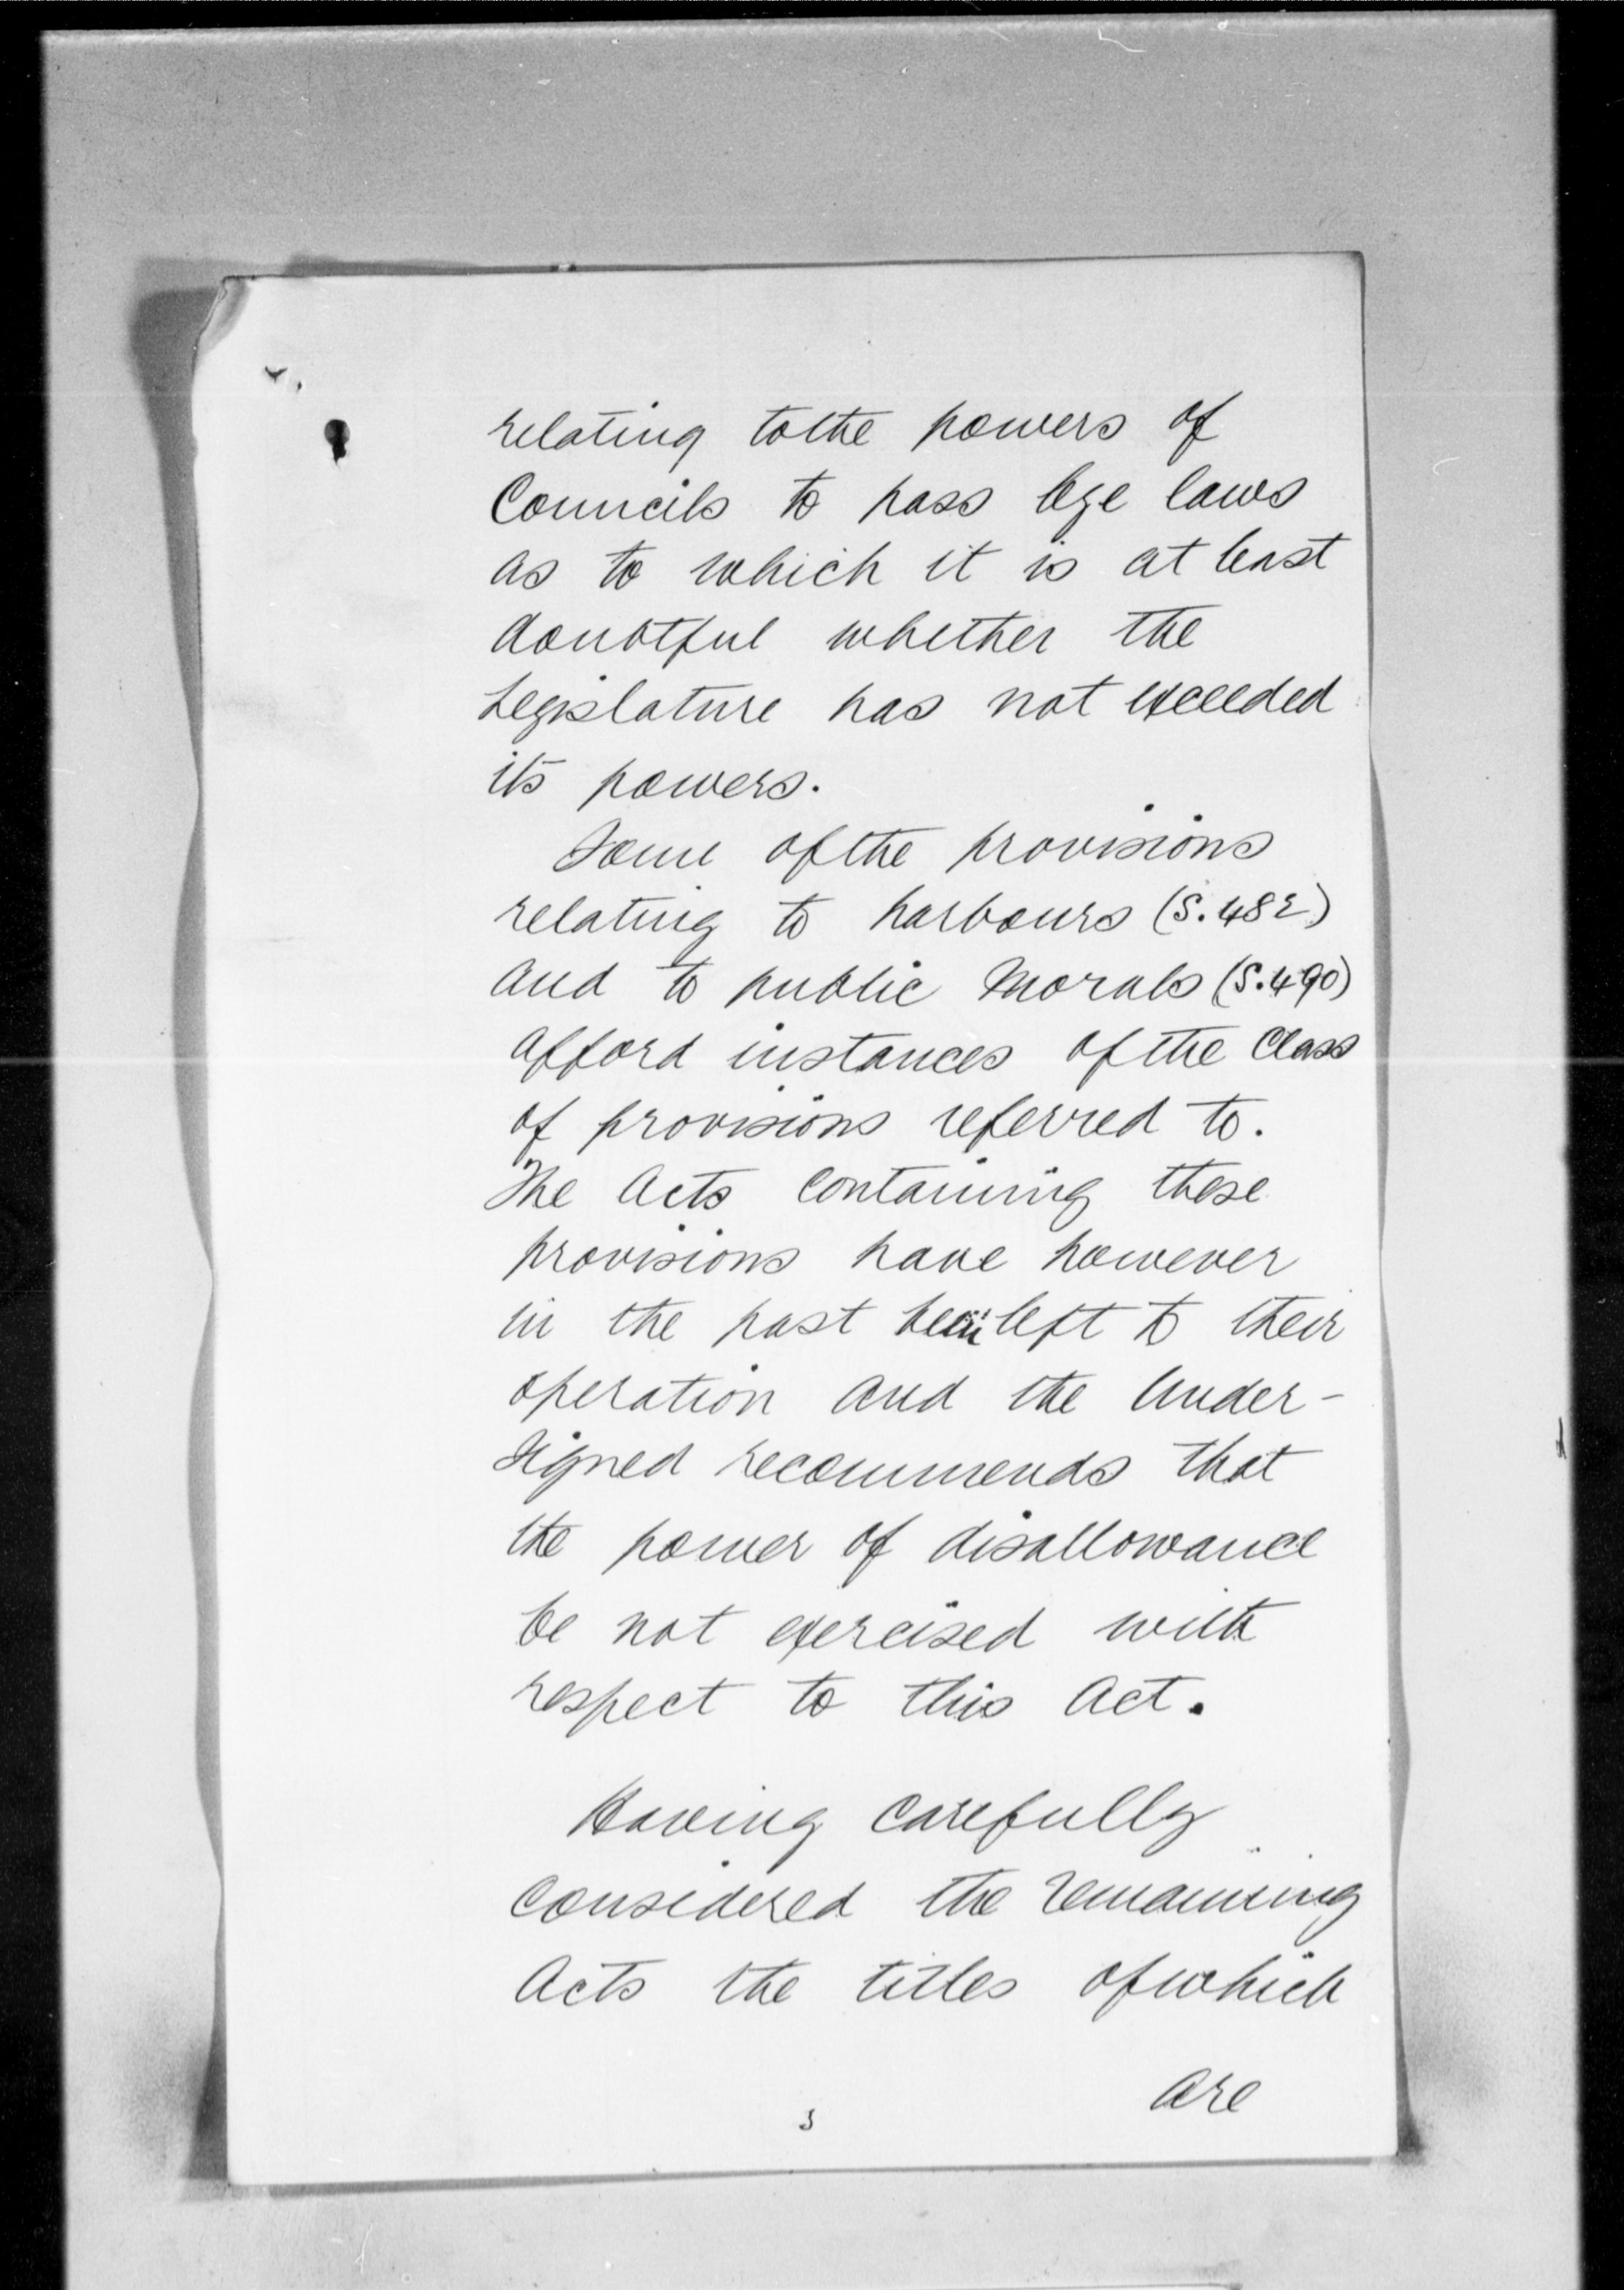 relating to the powers of
Councils to pass bye laws
as to which it is at least
doubtful whether the
Legislature has not exceeded
its powers.
Some of the provisions
relating to harbours (S. 482)
and to public Morals (S. 490)
afford instances of the Class
of provisions referred to.
The Acts Containing these
provisions have however
in the past been left to their
operation and the Under-
signed recommends that
the power of disallowance
be not exercised with
respect to this Act.
Having Carefully
Considered the remaining
Acts the titles of which
are
3